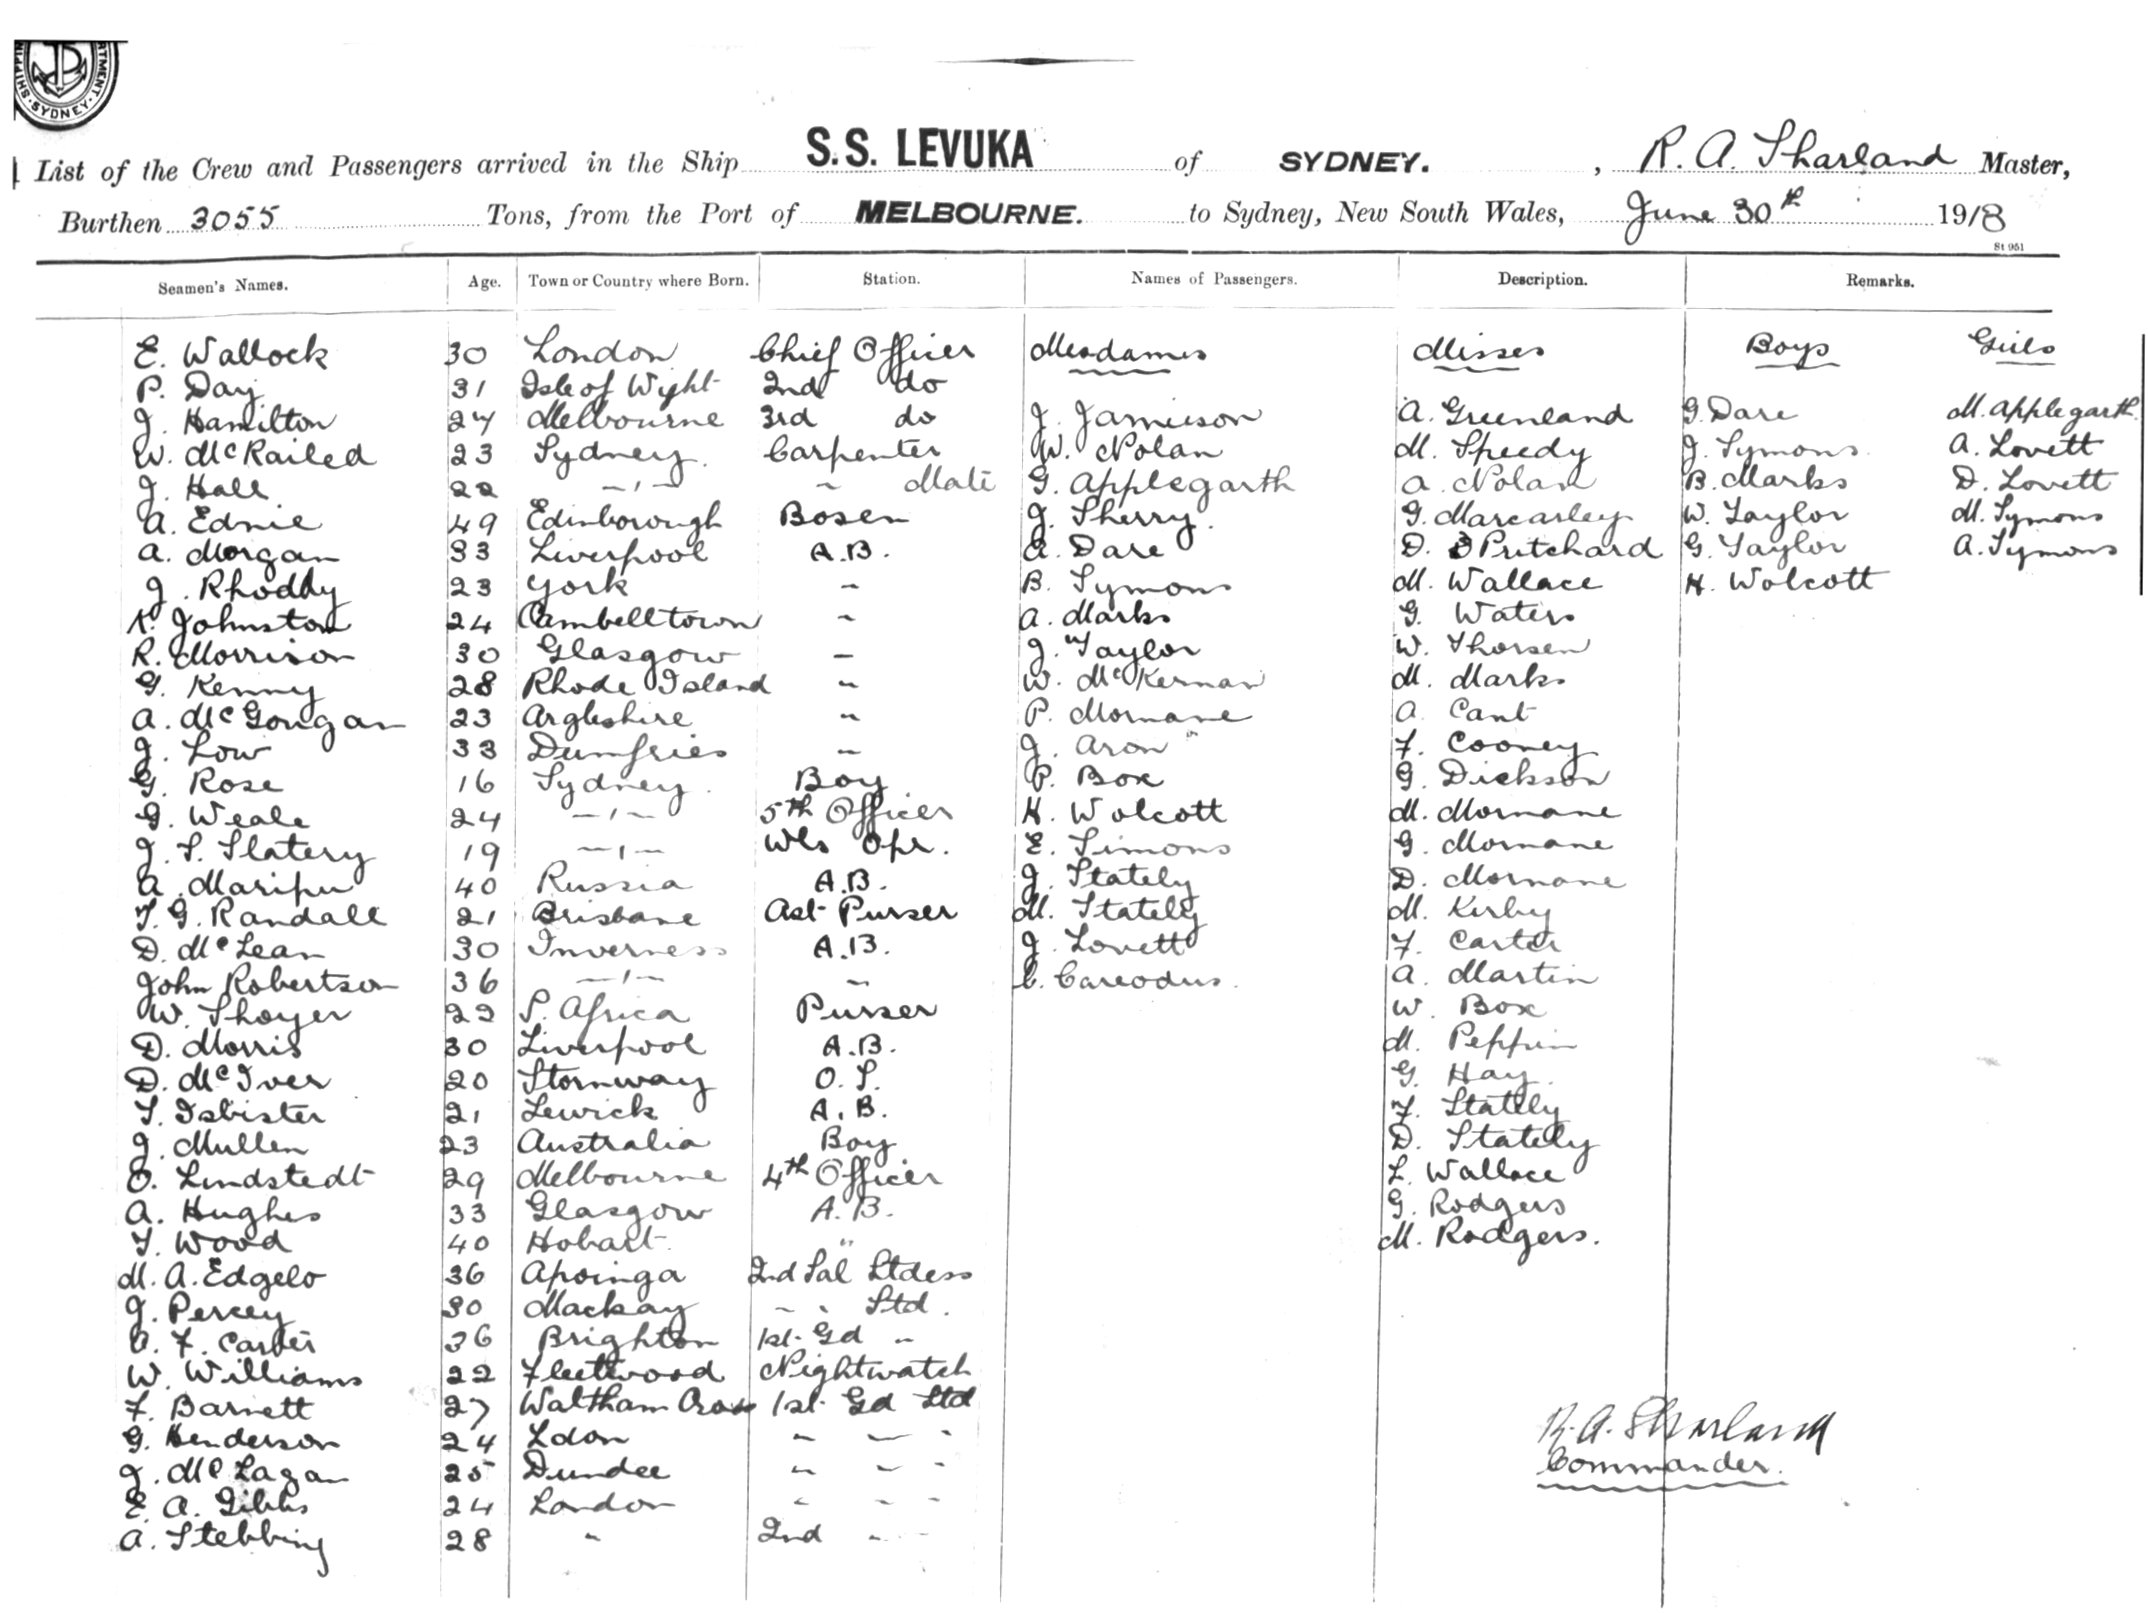 SHIPPIN RTMENT. SYDNEY.
List of the Crew and Passengers arrived in the Ship S.S. LEVUKA of SYDNEY. , R. A. Sharland Master,
Burthen 3055 Tons, from the Port of MELBOURNE. to Sydney, New South Wales, June 30th 1918
St 951
Seamen's Names. Age. Town or Country where Born. Station. Names of Passengers. Description. Remarks.
E. Wallock 30 London Chief Officer Mesdames Misses Boys Girls
P. Day 31 Isle of Wight 2nd do
J. Hamilton 27 Melbourne 3rd do J. Jamieson A. Greenland G. Dare M. Applegarth
W. McRailed 23 Sydney. Carpenter W. Nolan M. Speedy J. Symons A. Lovett
J. Hall 22 -,- " Mate G. Applegarth A. Nolan B. Marks D. Lovett
A. Ednie 49 Edinborough Bosen J. Sherry. G. Marcarley W. Taylor M. Symons
A. Morgan 33 Liverpool A.B. A. Dare D. Pritchard G. Taylor A. Symons
J. Rhoddy 23 York " B. Symons M. Wallace H. Wolcott
R. Johnston 24 Cambelltown " A. Marks G. Waters
R. Morrison 30 Glasgow " J. Taylor W. Thorsen
G. Kenny 28 Rhode Island " W. McKernan M. Marks
A. McGougan 23 Argleshire " P. Mornane A. Cant
J. Low 33 Dumfries " J. Aron F. Cooney
G. Rose 16 Sydney. Boy P. Box G. Dickson
G. Weale 24 -,- 5th Officer H. Wolcott M. Mornane
J. S. Slatery 19 -,- Wls Opr. E. Simons G. Mornane
A. Maripu 40 Russia A.B. J. Stately D. Mornane
T. G. Randall 21 Brisbane Ast Purser M. Stately M. Kirby
D. McLean 30 Inverness A.B. J. Lovett F. Carter
John Robertson 36 -,- " C. Careodus. A. Martin
W. Thoyer 22 S. Africa Purser W. Box
D. Morris 30 Liverpool A.B. M. Peppin
D. McIver 20 Stornway O.S. G. Hay.
T. Isbister 21 Lewick A.B. F. Stately
J. Mullen 23 Australia Boy D. Stately
O. Lindstedt 29 Melbourne 4th Officer L. Wallace
A. Hughes 33 Glasgow A.B. G. Rodgers
T. Wood 40 Hobart " M. Rodgers.
M. A. Edgelo 36 Apoinga 2nd Sal Stdess
J. Percey 30 Mackay " " Std.
A. F. Carter 36 Brighton 1st Gd "
W. Williams 22 Fleetwood Nightwatch
F. Barnett 27 Waltham Cross 1st Gd Std
G. Henderson 24 Ldon " " "
J. McLagan 25 Dundee " " "
E. A. Gibbs 24 London " " "
A. Stebbing 28 " 2nd " "
R. A. Sharland
Commander.